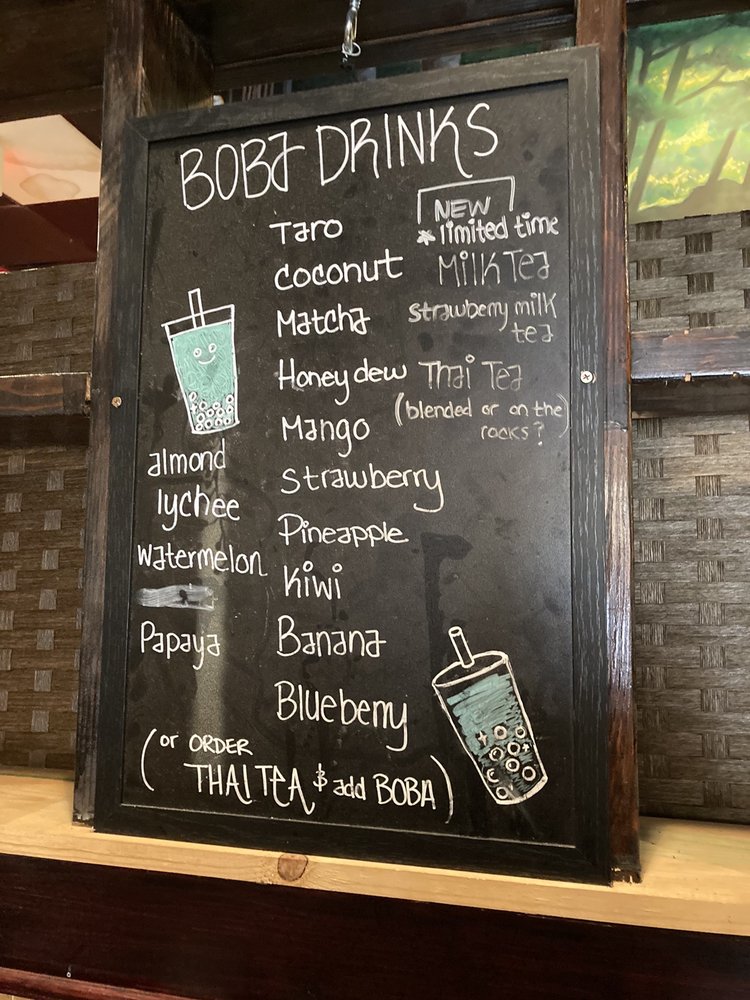 BOBA DRINKS
Taro
Coconut
Matcha
Honeydew
Mango
Strawberry
Pineapple
Kiwi
Banana
Blueberry
NEW
*limited time
Milk Tea
Strawberry milk
tea
Thai Tea
(blended or on the
rocks?)
almond
lychee
watermelon
Papaya
(or ORDER
THAI TEA & add BOBA)